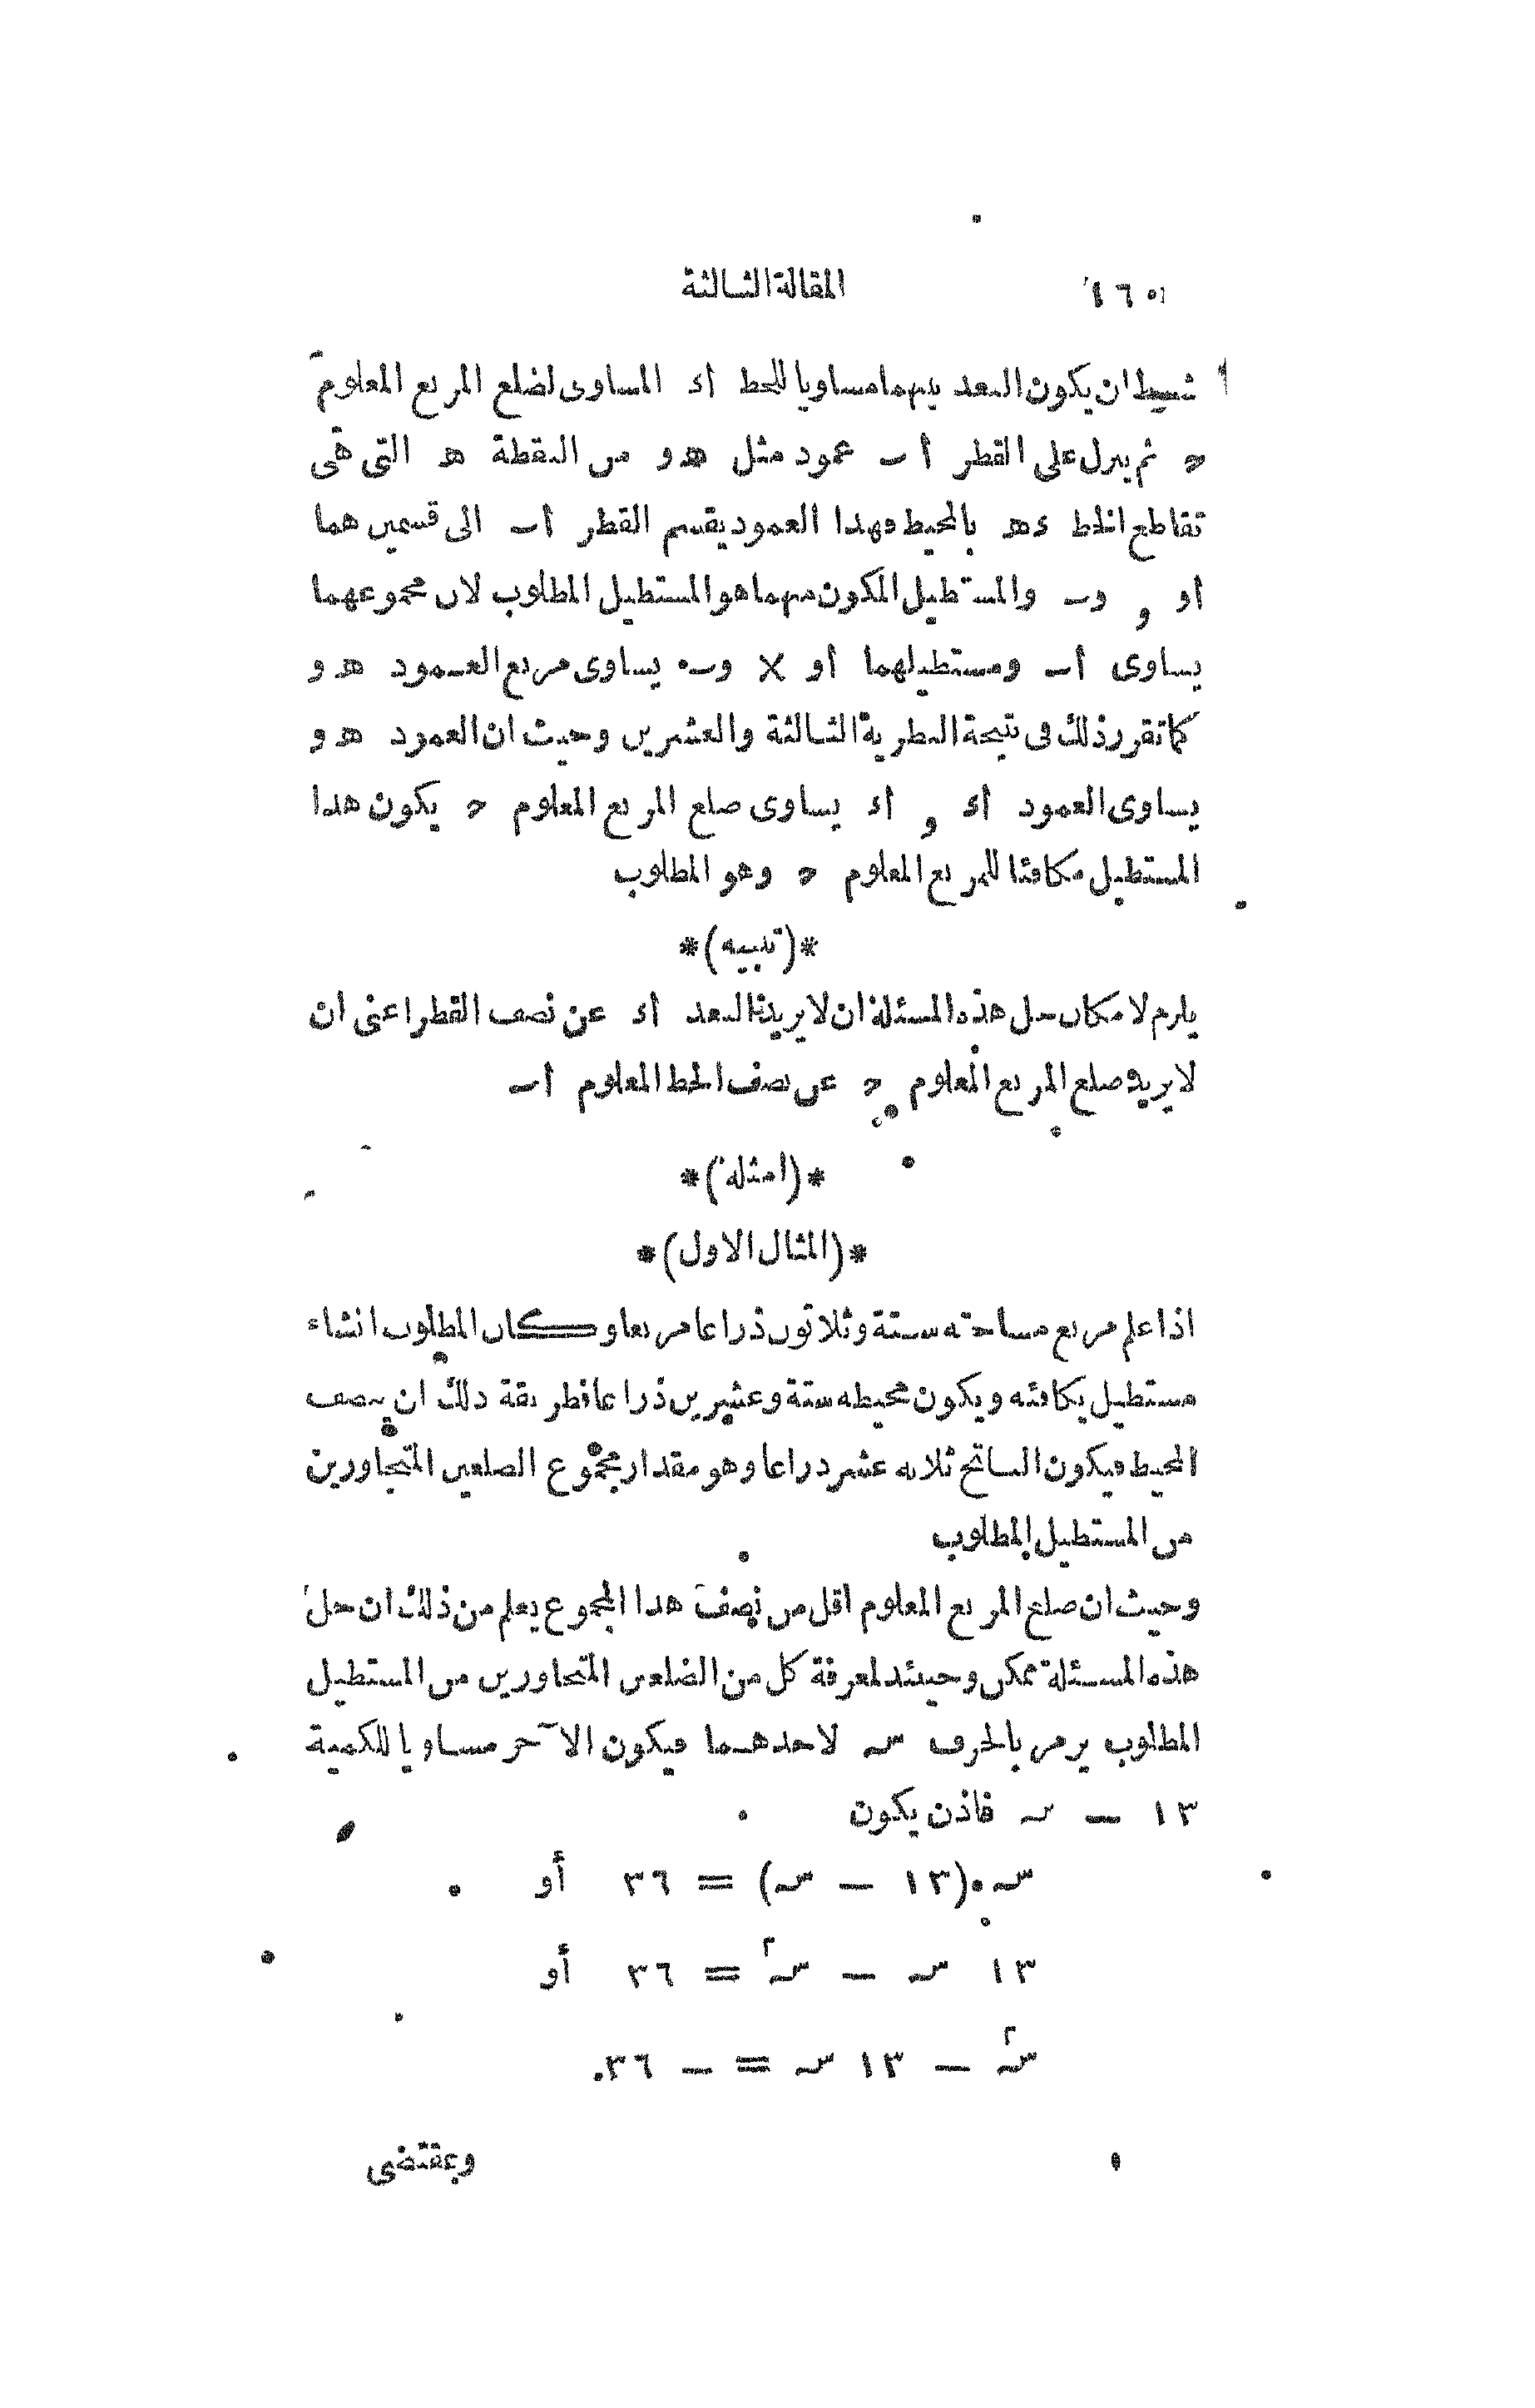 ١٦٠ المقالة الثالثة
بشرط ان يكون البعد بينهما مساويا للخط أد المساوى لضلع المربع المعلوم
ح ثم ينزل على القطر أب عمود مثل هو من النقطة ه التى هى
تقاطع الخط ده بالمحيط فهذا العمود يقسم القطر أب الى قسمين هما
أو و وب والمستطيل المكون منهما هو المستطيل المطلوب لان مجموعهما
يساوى أب ومستطيلهما أو × وب يساوى مربع العمود هو
كما تقرر ذلك فى نتيجة النظرية الثالثة والعشرين وحيث ان العمود هو
يساوى العمود أد و أد يساوى ضلع المربع المعلوم ح يكون هذا
المستطيل مكافئا للمربع المعلوم ح وهو المطلوب
*(تنبيه)*
يلزم لامكان حل هذه المسئلة ان لا يزيد البعد أد عن نصف القطر اعنى ان
لا يزيد ضلع المربع المعلوم ح عن نصف الخط المعلوم أب
*(امثلة)*
*(المثال الاول)*
اذا علم مربع مساحته ستة وثلاثون ذراعا مربعا وكان المطلوب انشاء
مستطيل يكافئه ويكون محيطه ستة وعشرين ذراعا فطريقة ذلك ان ينصف
المحيط فيكون الناتج ثلاثه عشر ذراعا وهو مقدار مجموع الضلعين المتجاورين
من المستطيل المطلوب
وحيث ان ضلع المربع المعلوم اقل من نصف هذا المجموع يعلم من ذلك ان حل
هذه المسئلة ممكن وحينئذ لمعرفة كل من الضلعين المتجاورين من المستطيل
المطلوب يرمز بالحرف سہ لاحدهما فيكون الآخر مساويا للكمية
١٣ — سہ فاذن يكون
سہ (١٣ — سہ) = ٣٦ أو
١٣ سہ — سہ٢ = ٣٦ أو
سہ٢ — ١٣ سہ = — ٣٦.
وبمقتضى